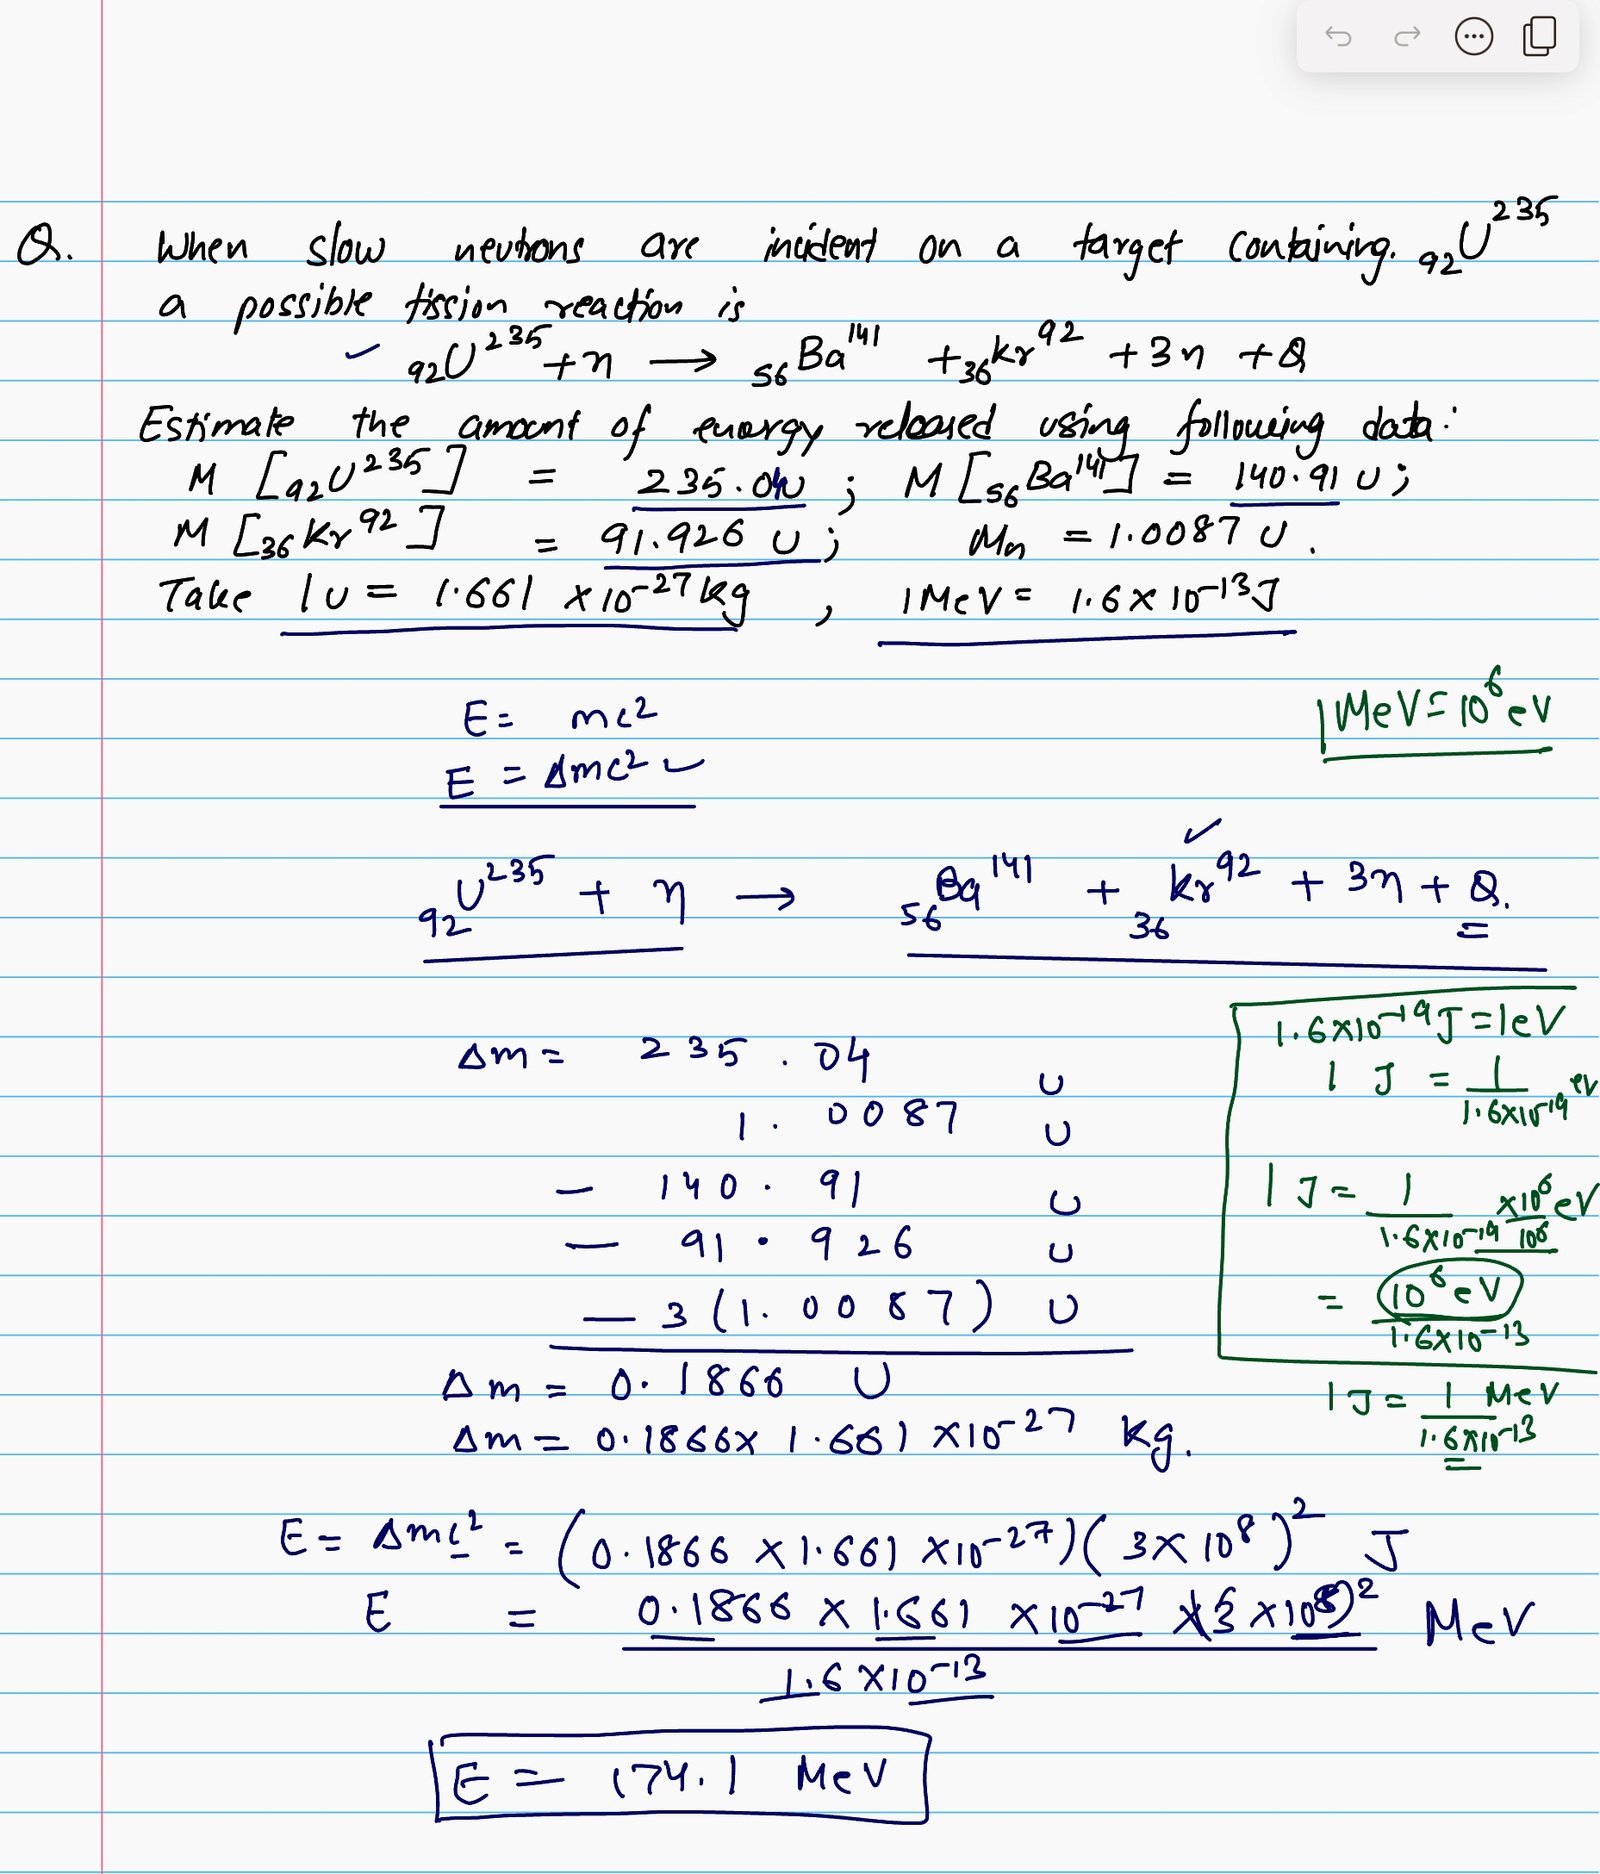 Q. When slow neutrons are incident on a target containing. ₉₂U²³⁵
a possible fission reaction is
✓ ₉₂U²³⁵ + n → ₅₆Ba¹⁴¹ + ₃₆Kr⁹² + 3n + Q
Estimate the amount of energy released using following data:
M [₉₂U²³⁵] = 235.04U ; M [₅₆Ba¹⁴¹] = 140.91 U ;
M [₃₆Kr⁹²] = 91.926 U ; Mn = 1.0087 U .
Take 1u = 1.661 × 10⁻²⁷ kg , 1MeV = 1.6 × 10⁻¹³J
E = mc²
1MeV = 10⁶ eV
E = Δmc² ✓
✓
₉₂U²³⁵ + n → ₅₆Ba¹⁴¹ + ₃₆Kr⁹² + 3n + Q.
Δm = 235.04 U
1.0087 U
– 140.91 U
– 91.926 U
– 3(1.0087) U
Δm = 0.1866 U
Δm = 0.1866 × 1.661 × 10⁻²⁷ Kg.
1.6×10⁻¹⁹J = 1eV
1 J = 1/1.6×10⁻¹⁹ eV
1 J = 1/1.6×10⁻¹⁹ × 10⁶/10⁶ eV
= 10⁶ eV/1.6×10⁻¹³
1 J = 1 MeV/1.6×10⁻¹³
E = Δmc² = (0.1866 × 1.661 × 10⁻²⁷)(3×10⁸)² J
E = 0.1866 × 1.661 × 10⁻²⁷ × (3 × 10⁸)² MeV
1.6 × 10⁻¹³
E = 174.1 MeV